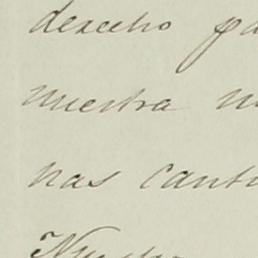 derecho pa
nuestra n
nas canti